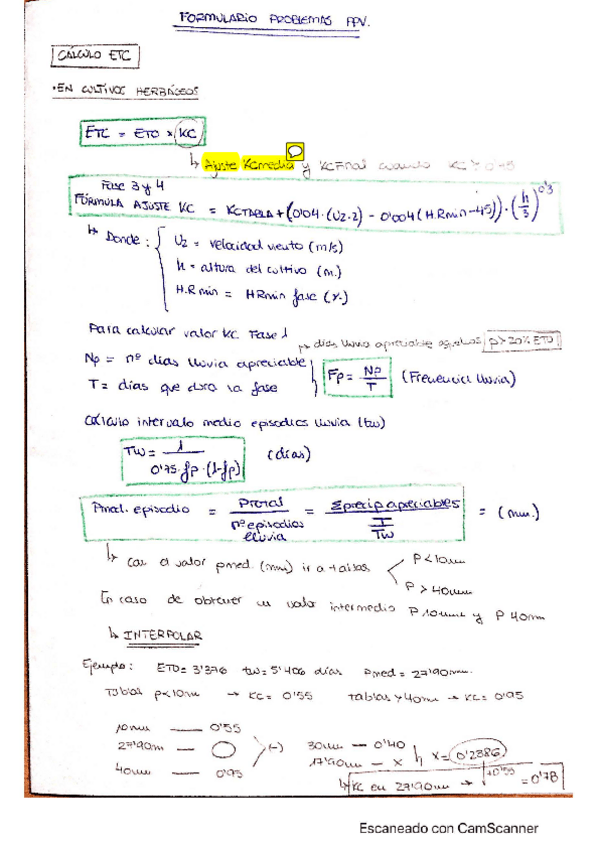 FORMULARIO PROBLEMAS PPV.
CÁLCULO ETC
• EN CULTIVOS HERBÁCEOS
ETC = ETO * KC
↳ Ajuste KCmedia y KCFinal cuando KC > 0'45
Fase 3 y 4
FÓRMULA AJUSTE KC = KCTABLA + (0'04·(U2-2) - 0'004(H.Rmin-45))·(h/3)^0'3
↳ Donde: U2 = velocidad viento (m/s)
h = altura del cultivo (m.)
H.Rmin = HRmin fase (%)
Para calcular valor KC Fase 1
→ días lluvia apreciable aquellos p > 20% ETO
Np = nº días lluvia apreciable
T = días que dura la fase
Fp = Np/T (Frecuencia lluvia)
Cálculo intervalo medio episodios lluvia (tw)
Tw = 1/(0'75·fp·(1-fp)) (días)
Pmed. episodio = Ptotal/nº episodios lluvia = Σprecip apreciables/(T/Tw) = (mm.)
↳ Con el valor pmed. (mm) ir a tablas, P<10mm
P>40mm
En caso de obtener un valor intermedio P 10mm y P 40mm
↳ INTERPOLAR
Ejemplo: ETO = 3'376 tw = 5'406 días Pmed = 27'90mm.
Tablas p<10mm → KC = 0'55 tablas >40mm → KC = 0'95
10mm — 0'55
27'90m — ◯ (-) 30mm — 0'40
17'90m — x x = 0'2386
40mm — 0'95
↳ KC en 27'90mm → +0'55 = 0'78
Escaneado con CamScanner